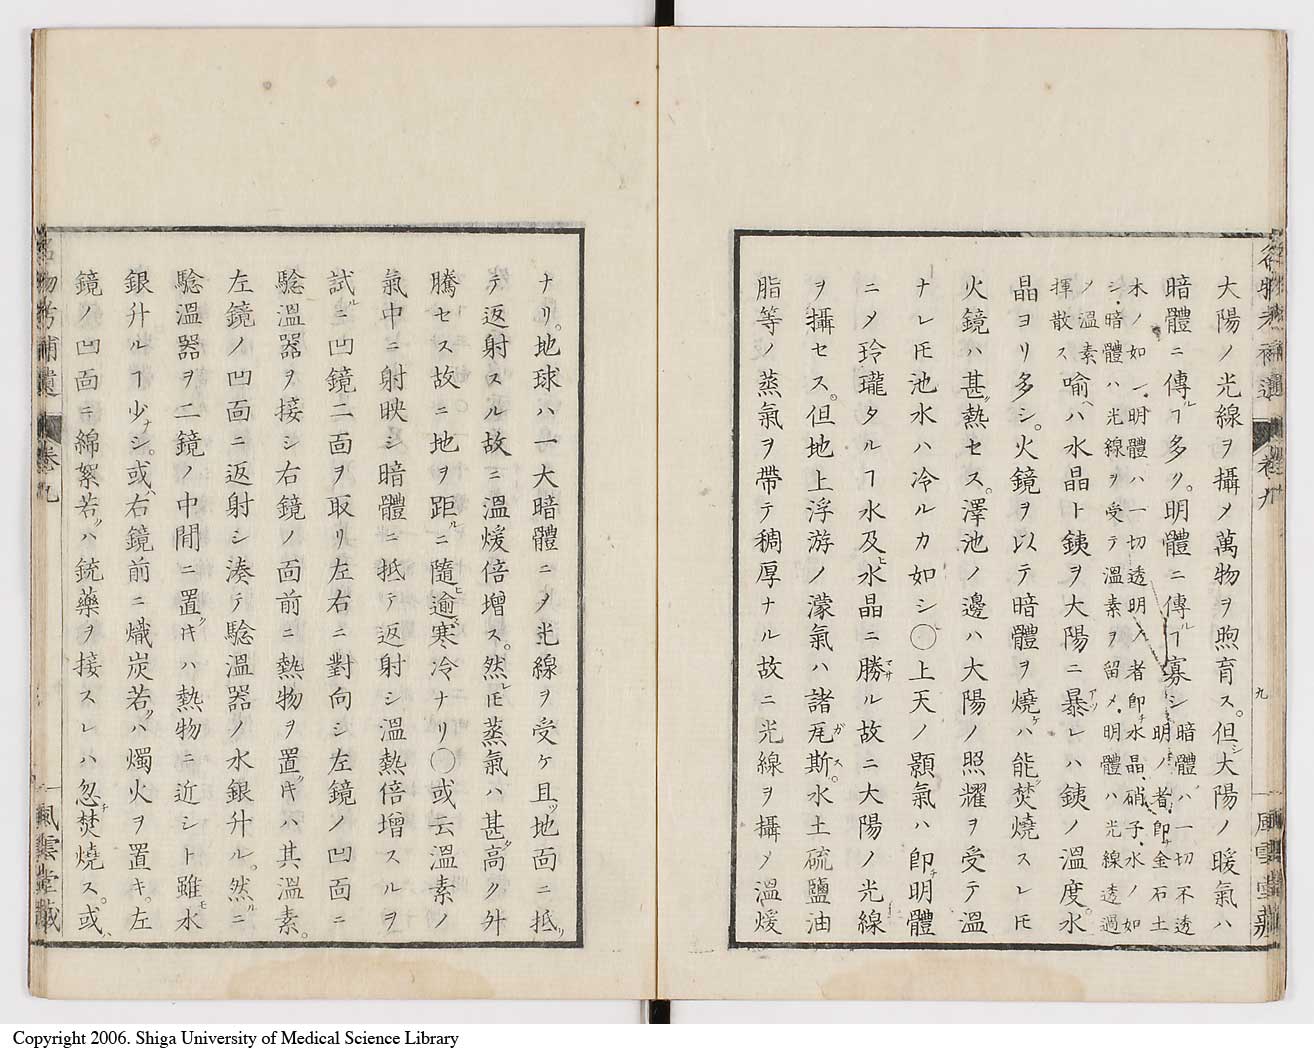 大陽ノ光線ヲ攝メ萬物ヲ煦育ス。但シ大陽ノ暖氣ハ
暗體ニ傳ルヿ多ク。明體ニ傳ルヿ寡シ
暗體ハ一切不透
明ノ者即チ金石土
木ノ如シ。明體ハ一切透明ノ者即チ水晶、硝子、水ノ如
シ、暗體ハ光線ヲ受テ溫素ヲ留メ、明體ハ光線透過
ノ溫素
揮散ス
喻ヘハ水晶ト銕ヲ大陽ニ暴レハ銕ノ溫度。水
晶ヨリ多シ。火鏡ヲ以テ暗體ヲ燒ケハ能ク焚燒スレ𪜈
火鏡ハ甚タ熱セス。澤池ノ邊ハ大陽ノ照耀ヲ受テ溫
ナレ𪜈池水ハ冷ルカ如シ〇上天ノ顥氣ハ即チ明體
ニメ玲瓏タルヿ水及ヒ水晶ニ勝ル故ニ大陽ノ光線
ヲ攝セス。但地上浮游ノ濛氣ハ諸瓦斯。水土硫鹽油
脂等ノ蒸氣ヲ帶テ稠厚ナル故ニ光線ヲ攝メ溫煖
ナリ。地球ハ一大暗體ニメ光線ヲ受ケ且ツ地面ニ抵ツ
テ返射スル故ニ溫煖倍增ス。然レ𪜈蒸氣ハ甚タ高ク外
騰セス故ニ地ヲ距ルニ隨ヒ逾寒冷ナリ〇或云溫素ノ
氣中ニ射映シ暗體ニ抵テ返射シ溫熱倍增スルヲ
試ルニ凹鏡二面ヲ取リ左右ニ對向シ左鏡ノ凹面ニ
驗溫器ヲ接シ右鏡ノ面前ニ熱物ヲ置クキハ其溫素。
左鏡ノ凹面ニ返射シ湊テ驗溫器ノ水銀升ル。然ルニ
驗溫器ヲ二鏡ノ中間ニ置クキハ熱物ニ近シト雖モ水
銀升ルヿ少ナシ。或ハ右鏡前ニ熾炭若クハ燭火ヲ置キ。左
鏡ノ凹面ニ綿絮若クハ銃藥ヲ接スレハ忽チ焚燒ス。或ハ
名物考補遺 卷九 九 風雲堂藏
名物考補遺 卷九 風雲堂藏
Copyright 2006. Shiga University of Medical Science Library